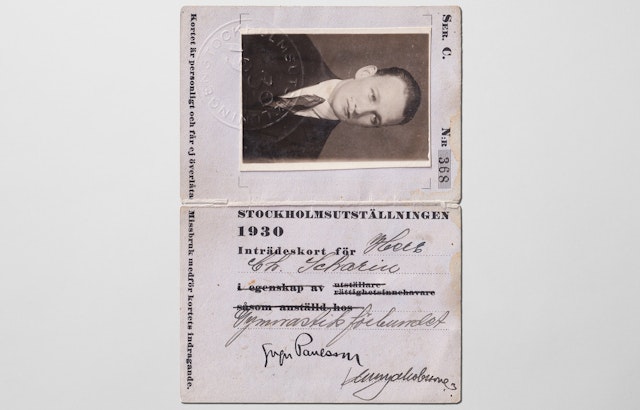 SER. C.
N:R 368
Kortet är personligt och får ej överlåtas
Missbruk medför kortets indragande.
STOCKHOLMSUTSTÄLLNINGEN
1930
Inträdeskort för Herr
Ch. Scharin
i egenskap av utställare
rättighetsinnehavare
såsom anställd hos
Gymnastikförbundet